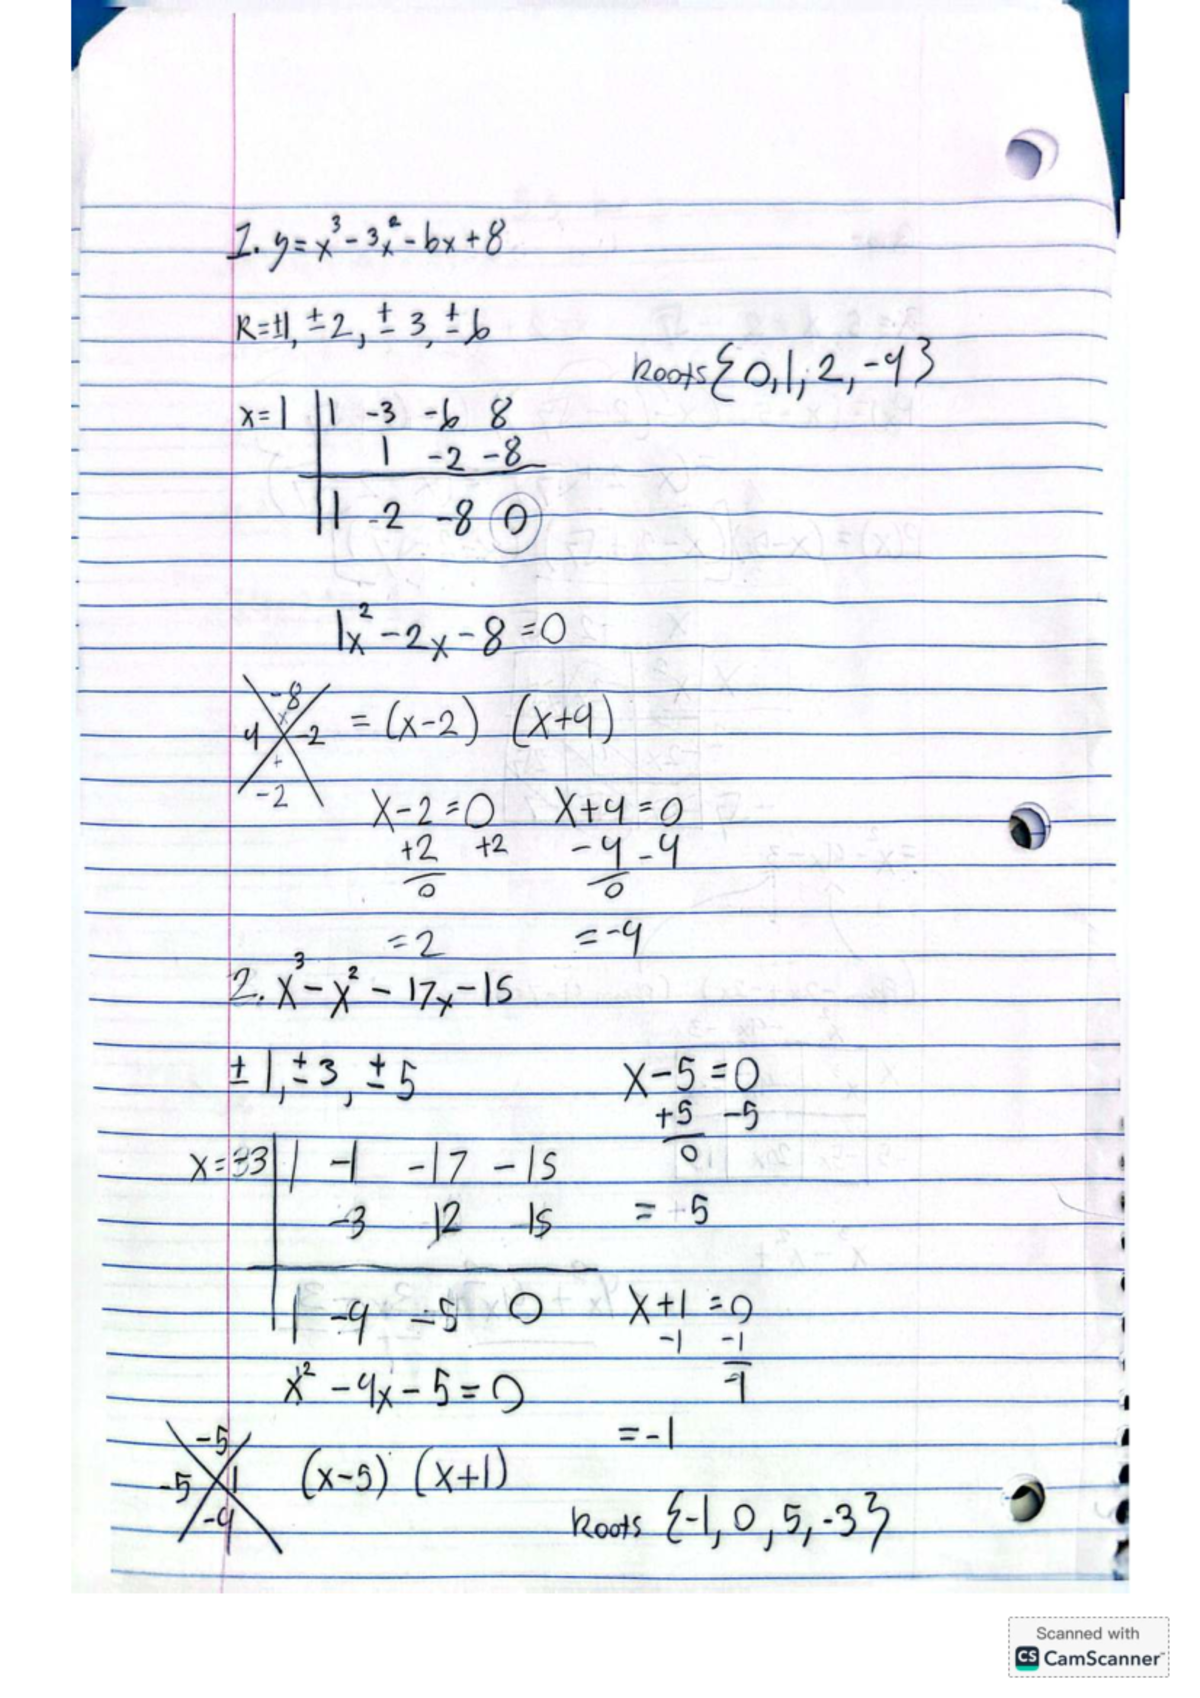 1. y = x³ - 3x² - 6x + 8
R = ±1, ±2, ±3, ±6
Roots {0, 1, 2, -4}
x = 1 | 1 -3 -6 8
1 -2 -8
1 -2 -8 0
1x² - 2x - 8 = 0
-8
4 x -2
+
-2
= (x-2) (x+4)
x-2=0 x+4=0
+2 +2 -4 -4
0 0
= 2 = -4
2. x³ - x² - 17x - 15
± 1, ± 3, ± 5
x = 33 | 1 -1 -17 -15
-3 12 15
1 -4 -5 0
x² - 4x - 5 = 0
-5
-5 1
-4
(x-5) (x+1)
x-5=0
+5 -5
0
= +5
x+1=0
-1 -1
-1
= -1
Roots {-1, 0, 5, -3}
Scanned with
CS CamScanner